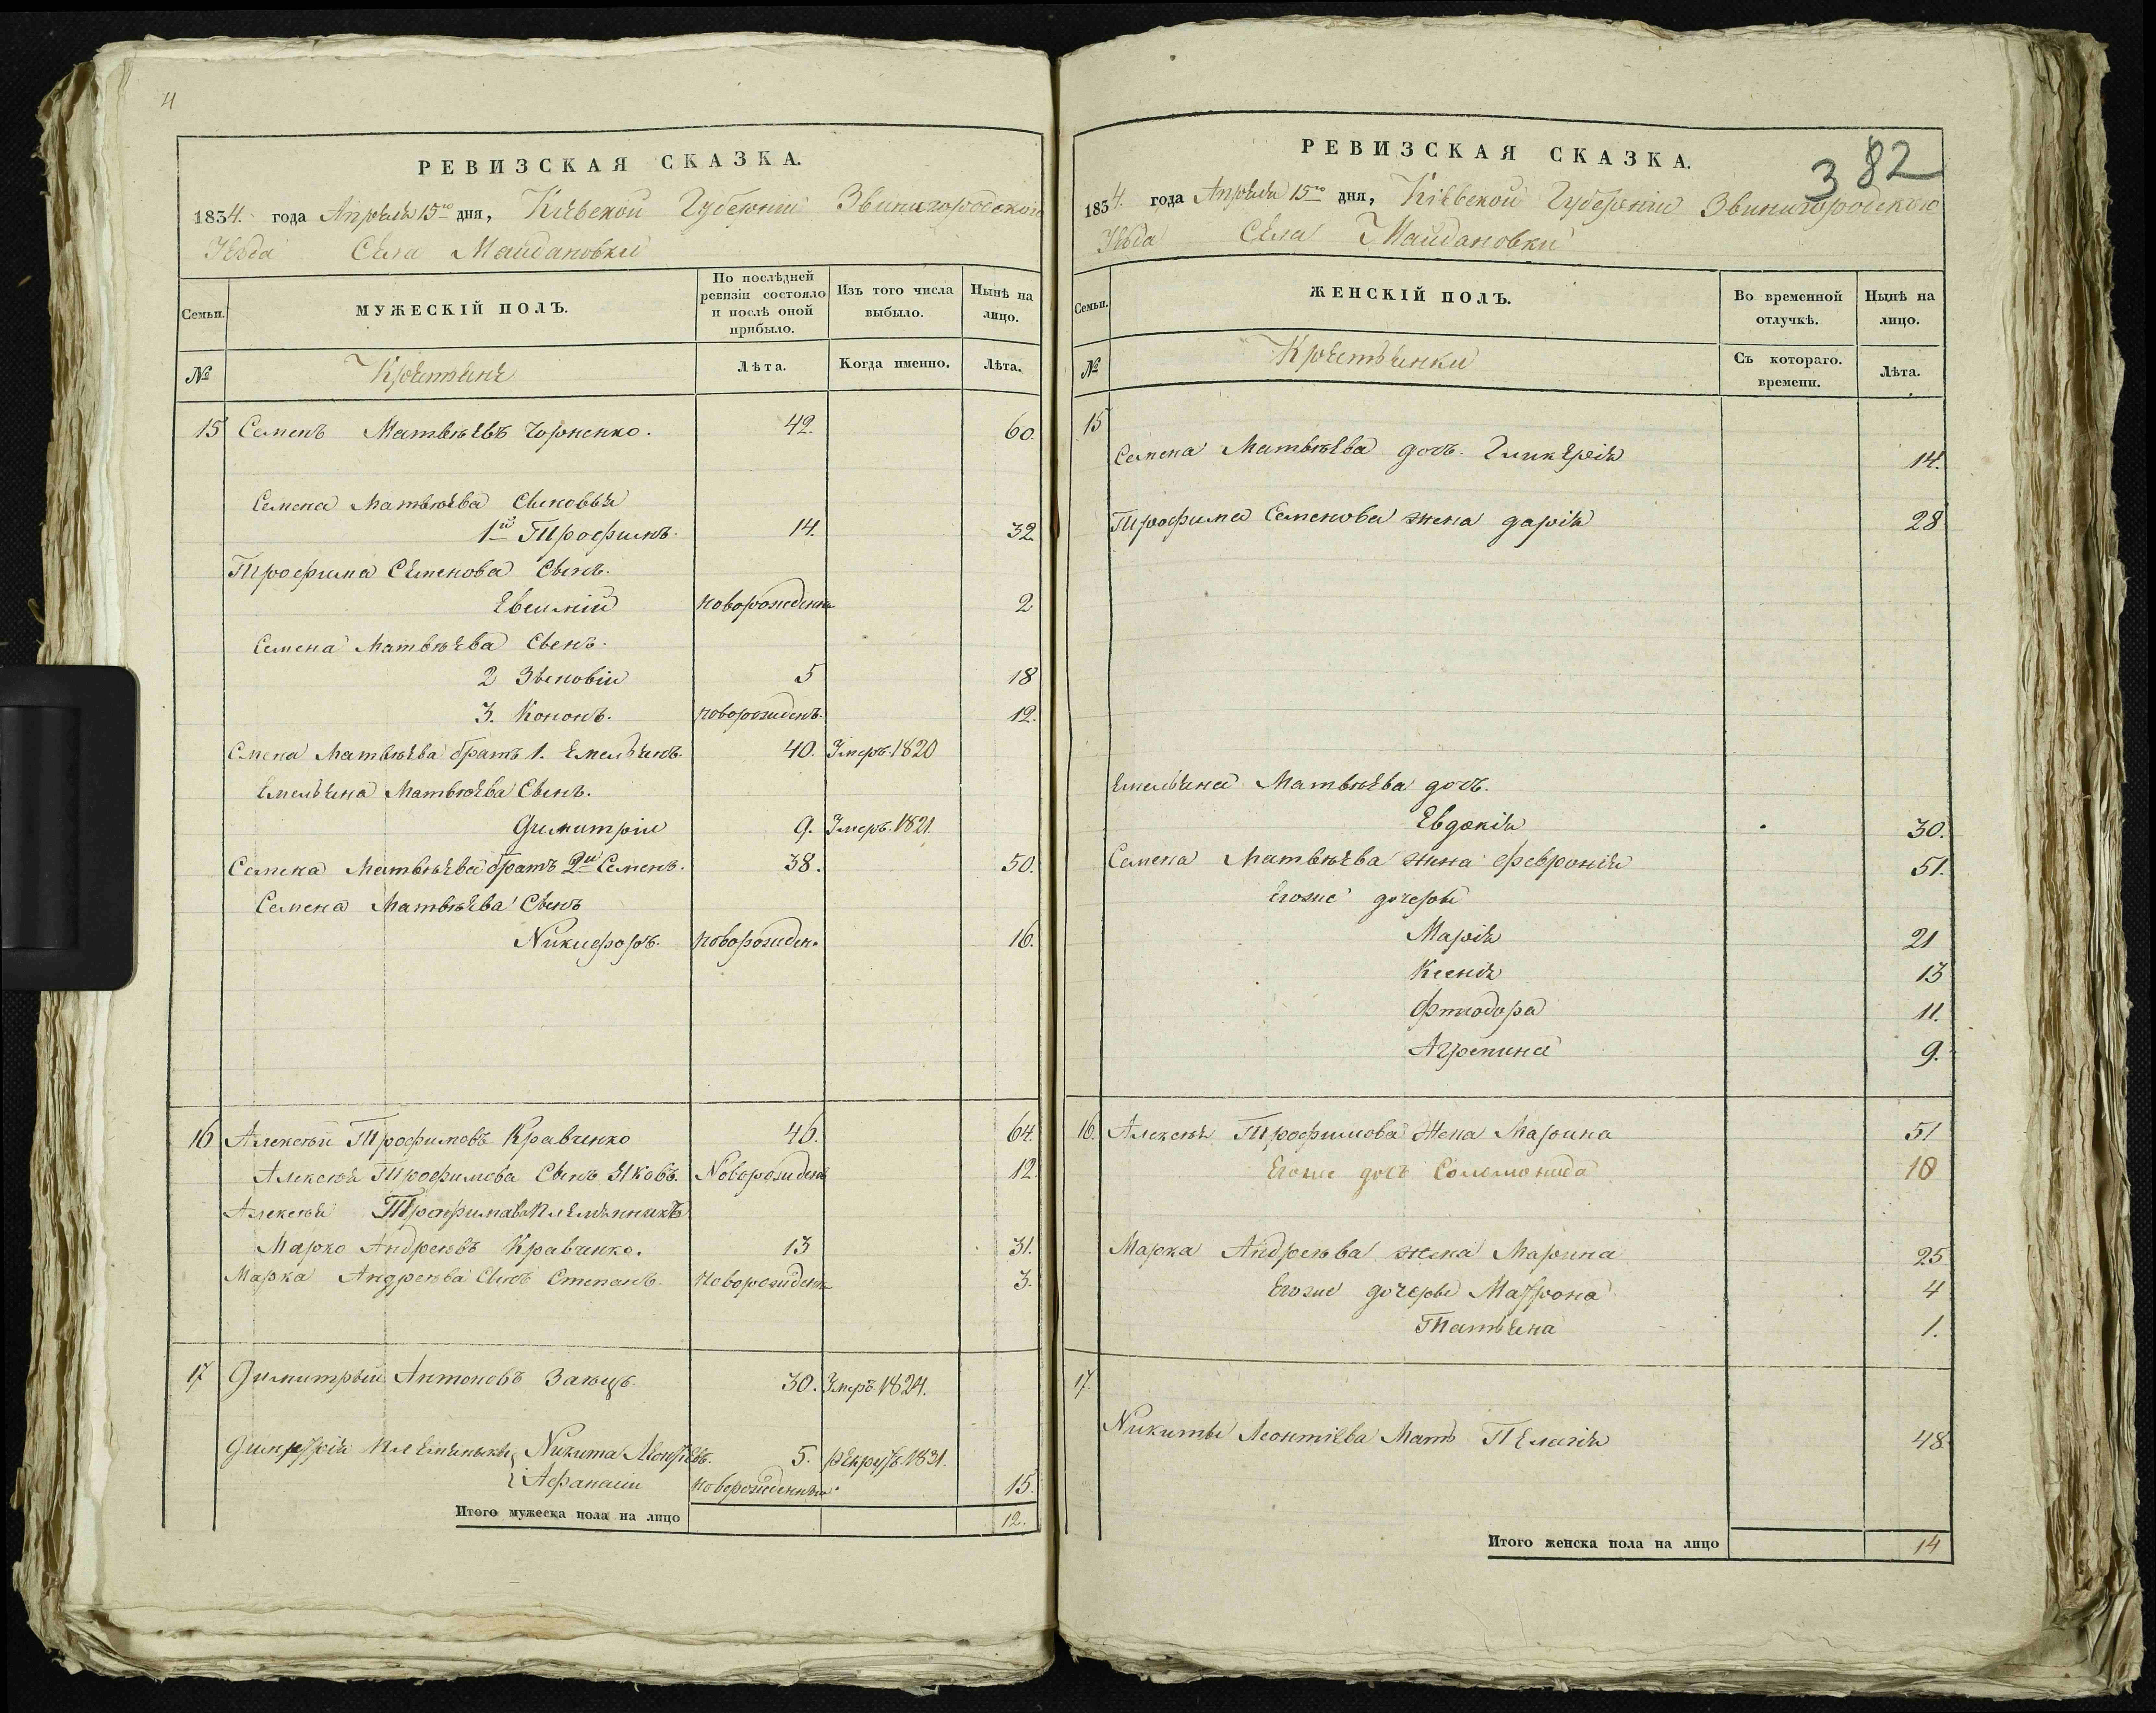 11
РЕВИЗСКАЯ СКАЗКА.
1834. года Апреля 15го дня, Кіевской Губерніи Звинигородского
Уезда Села Майдановки
Семьи.
МУЖЕСКІЙ ПОЛЪ.
По послѣдней ревизіи состояло и послѣ оной прибыло.
Изъ того числа выбыло.
Нынѣ на лицо.
№
Крестяне
Лѣта.
Когда именно.
Лѣта.
15 Семенъ Матвѣевъ Чорненко. 42. 60.
Семена Матвѣева Сыновья
1й Трофимъ. 14. 32.
Трофима Семенова Сынъ.
Евфимій новорожденъ 2
Семена Матвѣева Сынъ.
2 Зѣновіи 5 18
3. Кононъ. новорожденъ. 12.
Смена Матвѣева братъ 1. Емельянъ. 40. Умеръ. 1820
Емельяна Матвѣева Сынъ.
Димитріи 9. Умеръ. 1821
Семена Матвѣева братъ 2й Семенъ. 38. 50.
Семена Матвѣева Сынъ
Никифоръ. новорожден. 16.
16 Алексѣй Трофимовъ Кравченко 46. 64.
Алексѣя Трофимова Сынъ Яковъ. Новорожденъ 12.
Алексѣя Трофимова племянникъ
Марко Андреѣвъ Кравченко. 13 31.
Марка Андреѣва Сынъ Степанъ. новорожденъ 3.
17 Димитрый Антоновъ Заѣцъ 30. Умеръ 1824.
Димитрія племянники Никита Леонтіевъ. 5. рекрутъ. 1831.
Афанасіи новорожденный 15.
Итого мужеска пола на лицо 12.
382
РЕВИЗСКАЯ СКАЗКА.
1834. года Апреля 15го дня, Кіевской Губерніи Звинигородского
Уезда Села Майдановки
Семьи.
ЖЕНСКІЙ ПОЛЪ.
Во временной отлучкѣ.
Нынѣ на лицо.
№
Крестьянки
Съ котораго. времени.
Лѣта.
15
Семена Матвѣева дочь. Гликерія 14.
Трофима Семенова жена дарія 28
Емельяна Матвѣева дочь.
Евдокія 30.
Семена Матвѣева жена февронія 51.
Егоже дочеры
Марія 21
Ксенія 13
Фтиодора 11.
Агрепина 9.
16. Алексѣя Трофимова Жена Марина 51
Егоже дочь Соломонида 10
Марка Андреѣва жена Марина 25
Егоже дочеры Матрона 4
Татьяна 1.
17.
Никиты Леонтіева Мать Пелагія 48.
Итого женска пола на лицо 14